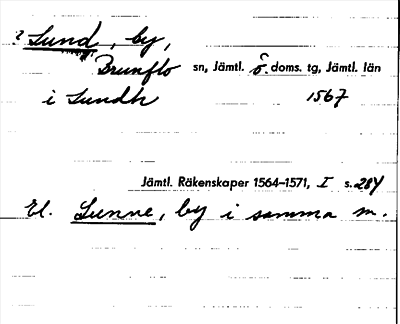 ? Lund, by,
Brunflo sn, Jämtl. ö. doms. tg, Jämtl. län
i Lundh 1567
Jämtl. Räkenskaper 1564–1571, I s. 284
El. Lunne, by i samma sn.